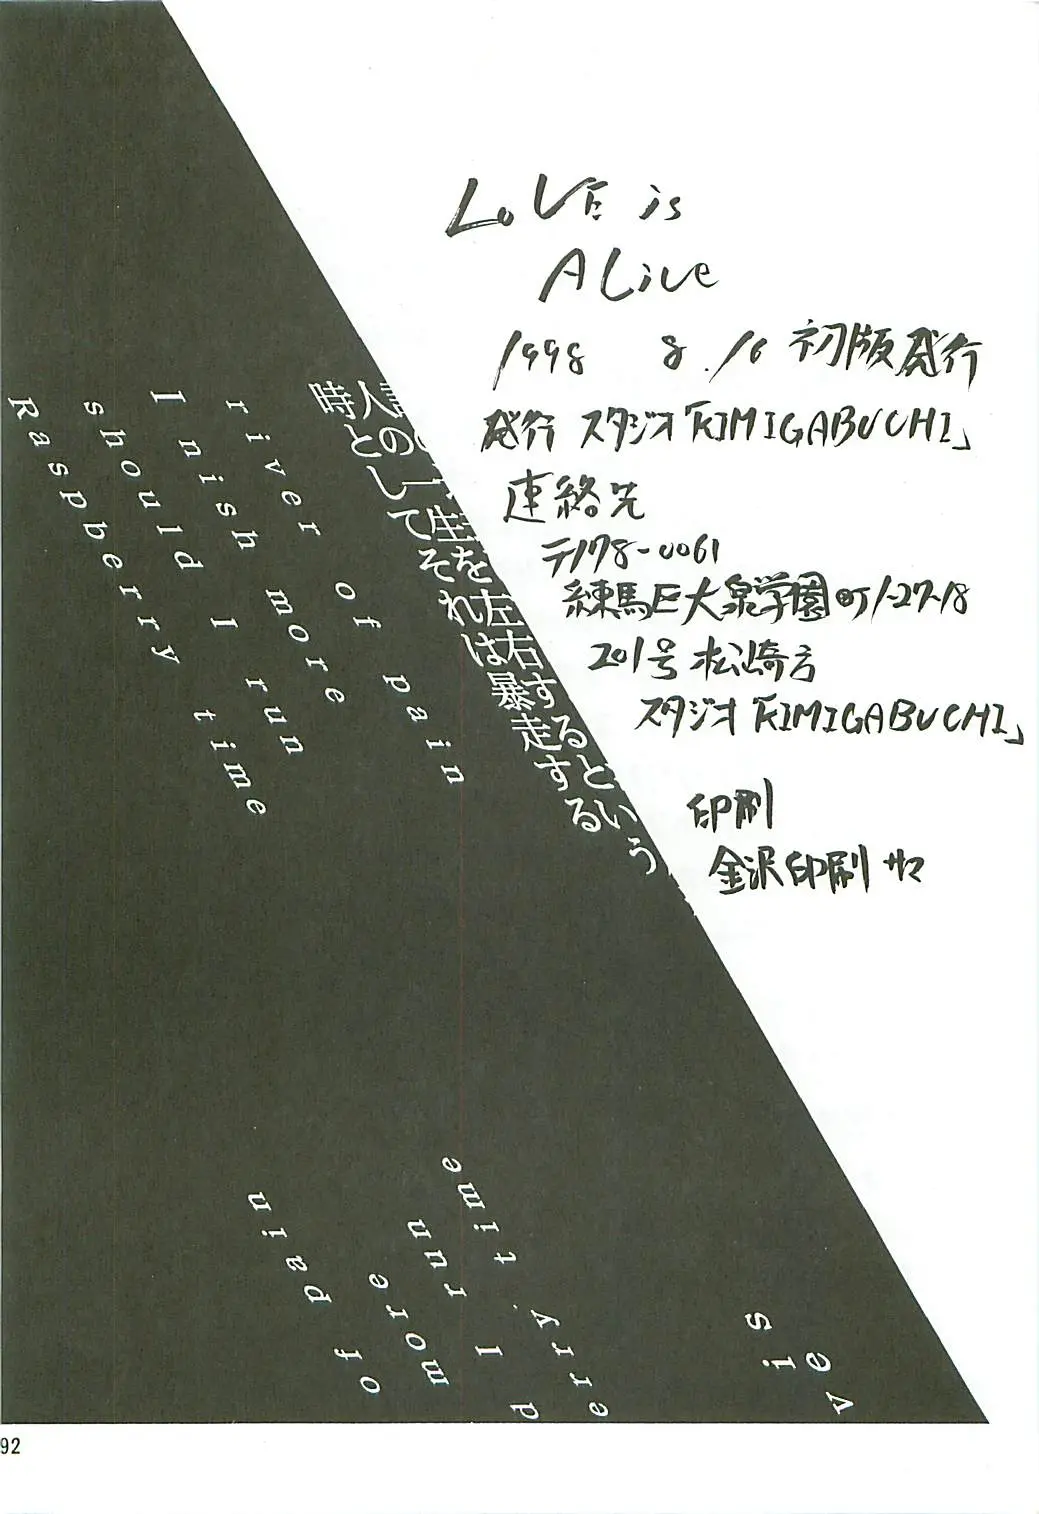 LoVE is
ALive
1998 8.16 初版発行
発行 スタジオ「KIMIGABUCHI」
連絡先
〒178-0061
練馬区大泉学園町1-27-18
201号 松崎方
スタジオ「KIMIGABUCHI」
印刷
金沢印刷サマ
の一生を左右するという
人の
時としてそれは暴走する
river of pain
I nish more
should I run
Raspberry time
pain
of
more
run
I
d
time
erry.
is
ve
92